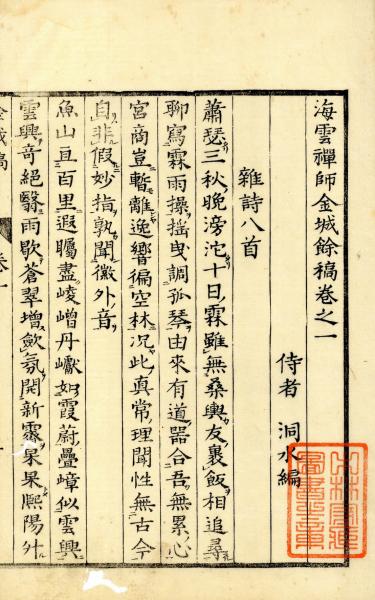 海雲禪師金城餘稿卷之一
侍者 洞水編
雜詩八首
蕭瑟三秋晚滂沱十日霖雖無桑輿友裹飯相追尋
聊寫霖雨操揺曳調孤琴由來有道器合吾無累心
宮商豈暫離逸響徧空林况此真常理聞性無古今
自非假妙指孰聞徽外音
魚山亘百里遐矚盡崚嶒丹巘如霞蔚疊嶂似雲興
雲興奇絕翳雨歇蒼翠增歛氛開新霽杲杲熈陽升
金城稿 卷一